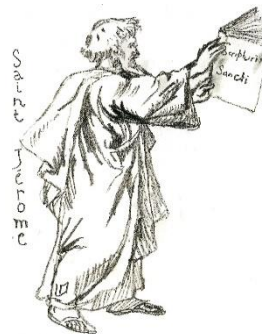 Saint Jérome
Scripturi
Sancti